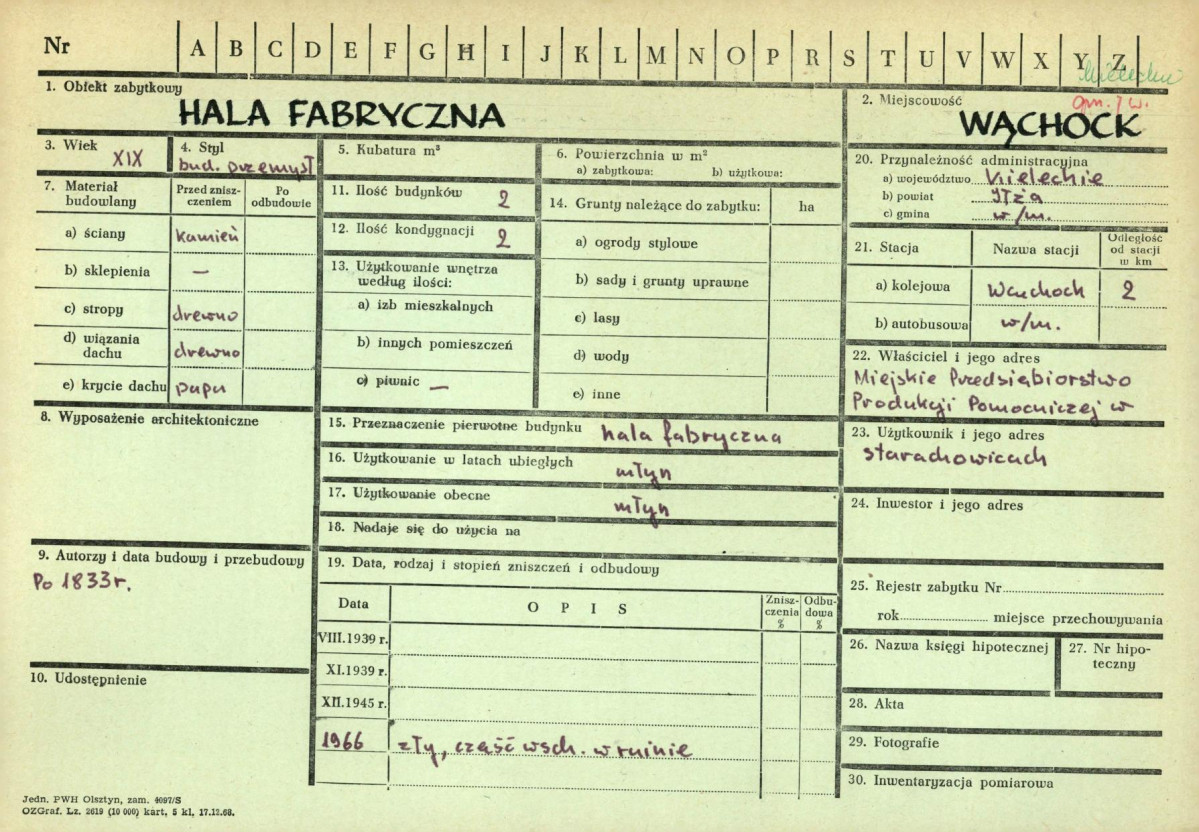 Nr A B C D E F G H I J K L M N O P R S T U V W X Y Z
1. Obiekt zabytkowy
HALA FABRYCZNA
2. Miejscowość
gm. j w.
WĄCHOCK
3. Wiek
XIX
4. Styl
bud. przemysł
5. Kubatura m³
6. Powierzchnia w m²
a) zabytkowa: b) użytkowa:
7. Materiał budowlany
Przed znisz-
czeniem
Po
odbudowie
a) ściany kamień
b) sklepienia —
c) stropy drewno
d) wiązania
dachu drewno
e) krycie dachu papa
11. Ilość budynków 2
12. Ilość kondygnacji 2
13. Użytkowanie wnętrza
według ilości:
a) izb mieszkalnych
b) innych pomieszczeń
c) piwnic —
14. Grunty należące do zabytku: ha
a) ogrody stylowe
b) sady i grunty uprawne
c) lasy
d) wody
e) inne
20. Przynależność administracyjna
a) województwo Kieleckie
b) powiat Iłża
c) gmina w/m.
21. Stacja Nazwa stacji
Odległość
od stacji
w km
a) kolejowa Wąchock 2
b) autobusowa w/m.
22. Właściciel i jego adres
Miejskie Przedsiębiorstwo
Produkcji Pomocniczej w
23. Użytkownik i jego adres
Starachowicach
24. Inwestor i jego adres
8. Wyposażenie architektoniczne
15. Przeznaczenie pierwotne budynku hala fabryczna
16. Użytkowanie w latach ubiegłych młyn
17. Użytkowanie obecne młyn
18. Nadaje się do użycia na
9. Autorzy i data budowy i przebudowy
Po 1833 r.
19. Data, rodzaj i stopień zniszczeń i odbudowy
Data O P I S
Znisz-
czenia
%
Odbu-
dowa
%
VIII.1939 r.
XI.1939 r.
XII.1945 r.
1966 zły, cześć wsch. w ruinie
10. Udostępnienie
25. Rejestr zabytku Nr
rok miejsce przechowywania
26. Nazwa księgi hipotecznej
27. Nr hipo-
teczny
28. Akta
29. Fotografie
30. Inwentaryzacja pomiarowa
Jedn. PWH Olsztyn, zam. 4097/S
OZGraf. Lz. 2619 (10 000) kart, 5 kl, 17.12.68.